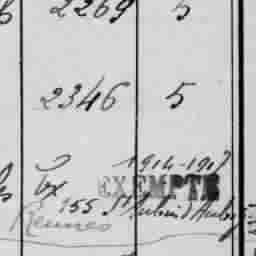 2269 5
2346 5
1914-1917
Ex EXEMPTE
155 St Aubin d'Aubigné
Rennes